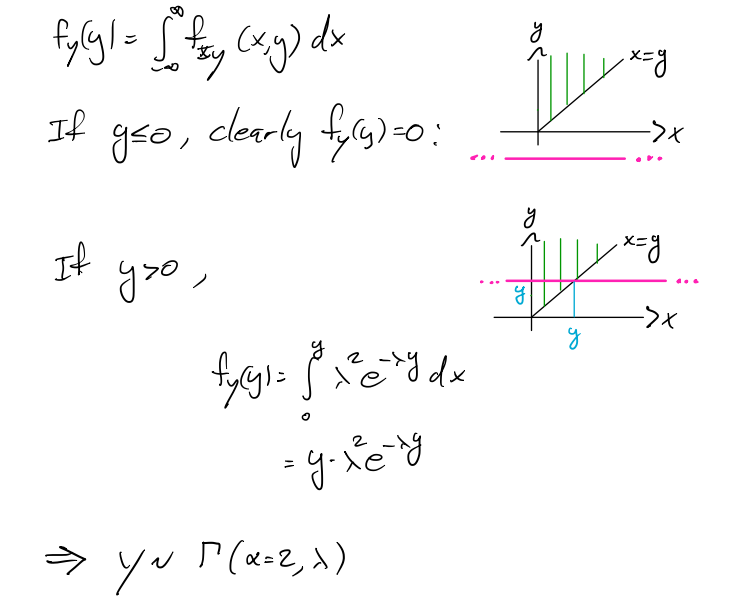 f_Y(y) = ∫_{-∞}^{∞} f_{XY}(x,y) dx
y
x=y
>x
If y≤0, clearly f_Y(y)=0:
... ...
y
x=y
If y>0,
... ...
y
>x
y
f_Y(y) = ∫_0^y λ² e^{-λy} dx
= y·λ² e^{-λy}
⇒ Y ~ Γ(α=2, λ)